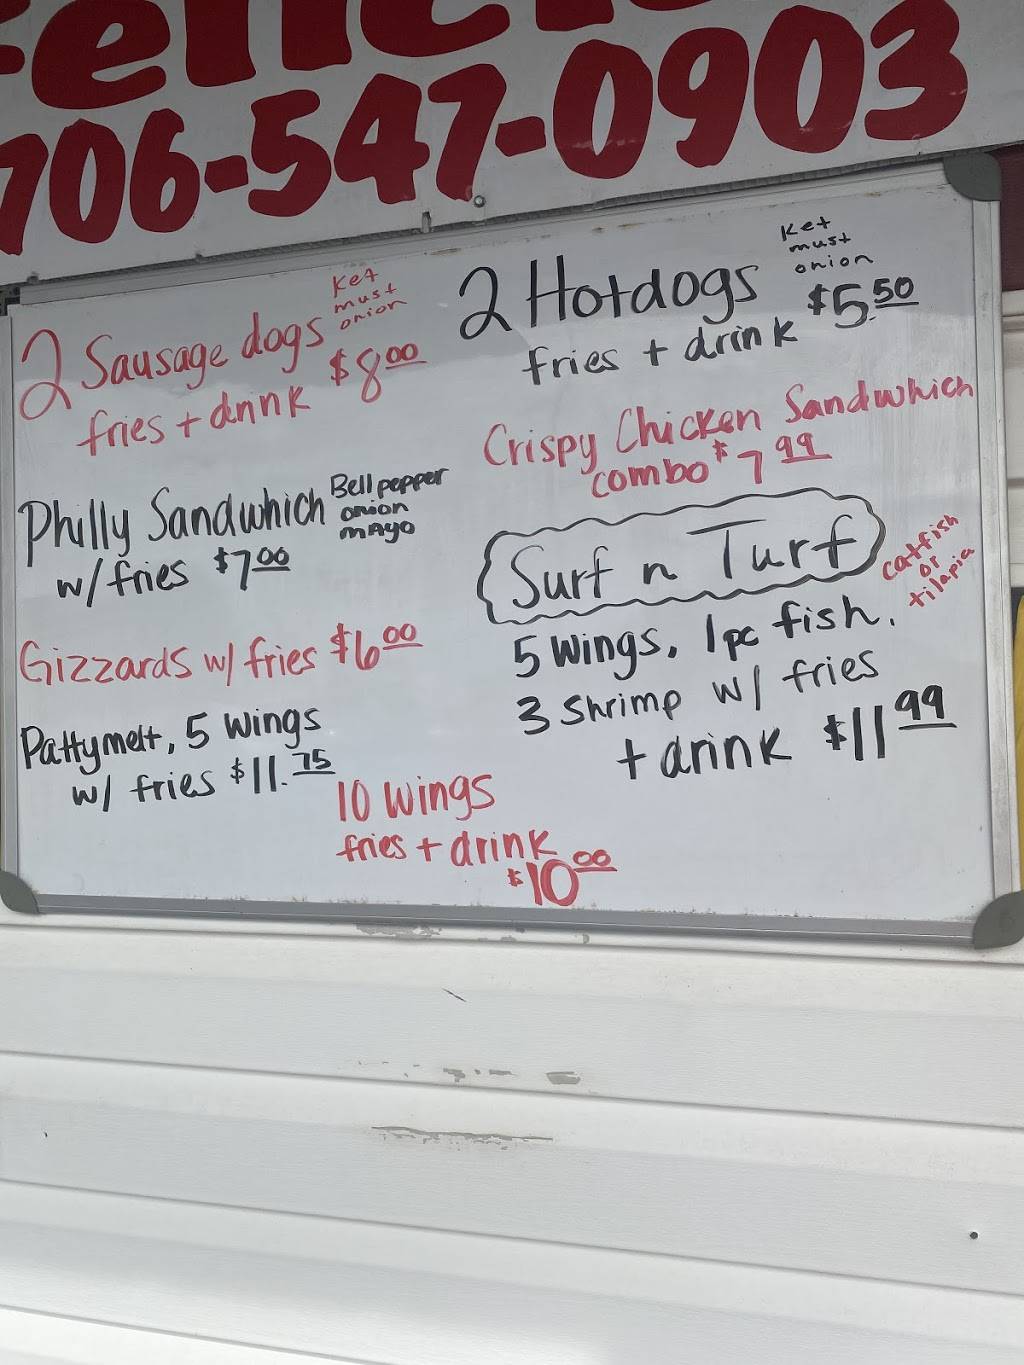 706-547-0903
2 Sausage dogs
Ket
must
onion
fries + drink $8.00
Philly Sandwhich
Bell pepper
onion
mayo
w/ fries $7.00
Gizzards w/ fries $6.00
Pattymelt, 5 wings
w/ fries $11.75
10 wings
fries + drink
$10.00
2 Hotdogs
Ket
must
onion
$5.50
fries + drink
Crispy Chicken Sandwhich
combo $7.99
Surf n Turf
catfish
or
tilapia
5 wings, 1pc fish.
3 shrimp w/ fries
+ drink $11.99